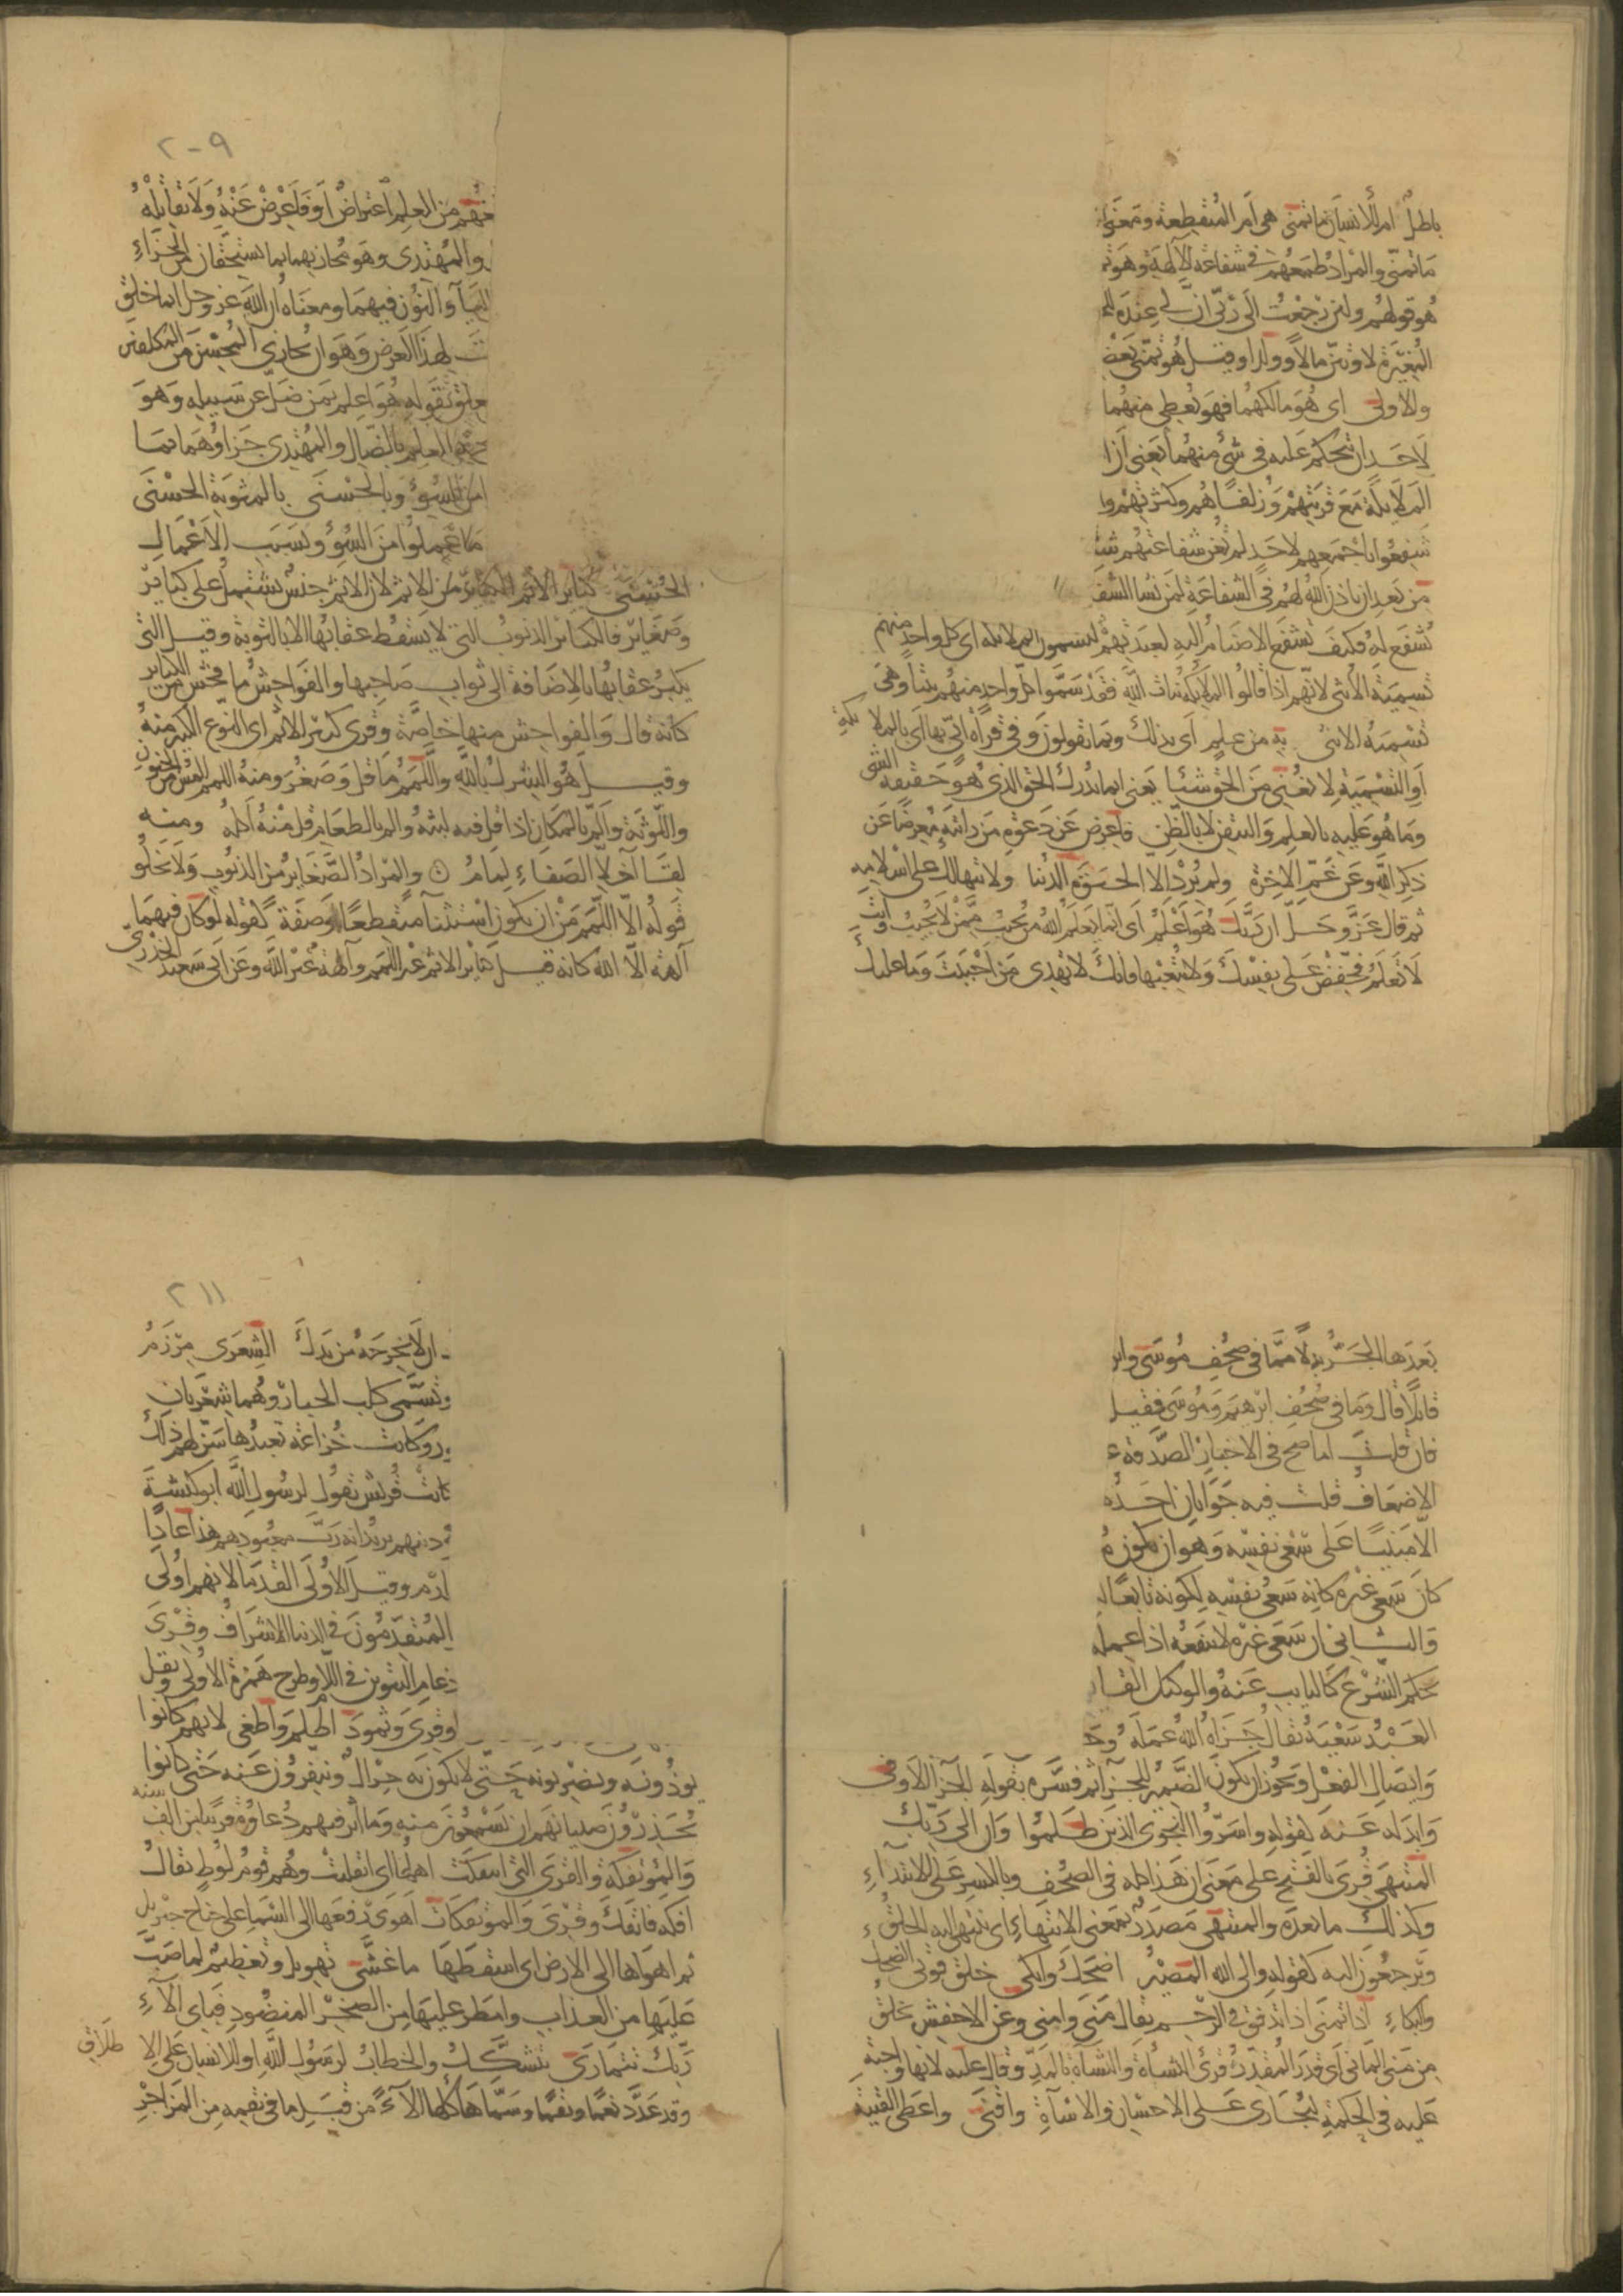 باطل ام للانسان ما تمنى هي ام المنقطعة ومعنى
ما تمنى والمراد طمعهم في شفاعة الالهة وهو
هو قولهم ولئن رجعت الى ربي ان لي عنده
المغيرة لاوتين مالا وولدا وقيل هو تمنى بعض
والاولى اى هو مالكهما فهو يعطى منهما
لاحد ان يتحكم عليه فى شئ منهما يعنى ان
الملايكة مع قربتهم وزلفاهم وكثرتهم وا
شفعوا باجمعهم لاحد لم تغن شفاعتهم شيـ
من بعد ان ياذن الله لهم فى الشفاعة لمن تشا الشفـ
تشفع له فكيف تشفع الاصنام اليه لعبدتهم ليسمون الملايكة اى كل واحد منهم
تسمية الأنثى لانهم اذا قالوا الملايكة بنات الله فقد سموا كل واحد منهم بنتا وهى
تسمية الانثى به من علم أى بذلك وبما تقولون وفى قراة ابى بها اى بالملا يكة
او التسمية لا تغنى من الحق شيئا يعنى انما يدرك الحق الذى هو حقيقة الشى
وما هو عليه بالعلم والتيقن لا بالظن فاعرض عن دعوة من راته معرضا عن
ذكر الله وعن غم الآخرة ولم يرد الا الحيوة الدنيا ولا تتهالك على اسلامه
ثم قال عز وجل ان ربك هو اعلم اى انما يعلم الله من يجيب ممن لا يجيب وانت
لا تعلم فخفض على نفسك ولا تتعبها فانك لا تهدى من احببت وما عليك
٢٠٩
من العلم اعتراض او فاعرض عنه ولا تقابله
والمهتدى وهو مجازيهما بما يستحقان من الجزاء
اليآ والنون فيهما ومعناه ان الله عز وجل انما خلق
ت لهذا الغرض وهو ان يجازى المحسن من المكلفين
يتعلق بقوله هو اعلم بمن ضل عن سبيله وهو
العلم بالضال والمهتدى جزاوهما بما
السوء وبالحسنى بالمثوبة الحسنى
ما عملوا من السوء وبسبب الاعمال
الحسنى كباير الاثم الكباير من الاثم لان الاثم جنس يشتمل على كباير
وصغاير فالكباير الذنوب التى لا يسقط عقابها الا بالتوبة وقيل التى
يكبر عقابها بالاضافة الى ثواب صاحبها والفواحش ما فحش من الكباير
كانه قال والفواحش منها خاصة وقرى كبير الاثم اى النوع الكبير منه
وقيل هو الشرك بالله واللمم ما قل وصغر ومنه اللمم المس من الجنون
واللوثة والم بالمكان اذا قل فيه لبثه والم بالطعام قل منه اكله ومنه
لقاء اخلاء الصفاء لمام والمراد الصغاير من الذنوب ولا يخلو
قوله الا اللمم من ان يكون استثنآ منقطعا او صفة كقوله لو كان فيهما
آلهة الا الله كانه قيل كباير الاثم غير اللمم وآلهة غير الله وعن ابى سعيد الخدرى
بعدها الجر بدلا مما فى صحف موسى وابر
قايلا قال وما فى صحف ابرهيم وموسى فقيل
فان قلت اما صح فى الاخبار الصدقة
الاضعاف قلت فيه جوابان احده
الا مبنيا على سعى نفسه وهو ان يكون م
كان سعى غيره كانه سعى نفسه لكونه تابعا
والثانى ان سعى غيره لا ينفعه اذا عمله
بحكم الشرع كالنايب عنه والوكيل القا
العبد سعيه يقال جزاه الله عمله وجـ
وايصال الفعل ويجوز ان يكون الضمير للجزآ ثم فسره بقوله الجزآ الاوفى
وابدله عنه كقوله واسروا النجوى الذين ظلموا وان الى ربك
المنتهى قرى بالفتح على معنى ان هذا كله فى الصحف وبالكسر على الابتداء
وكذلك ما بعده والمنتهى مصدر بمعنى الانتهاء اى ينتهى اليه الخلق
ويرجعون اليه كقوله والى الله المصير اضحك وابكى خلق قوتى الضحك
والبكاء اذا تمنى اذا تدفق فى الرحم يقال منى وامنى وعن الاخفش تخلق
من منى المانى اى قدر المقدر قرئ النشأة والنشآة بالمد وقال عليه لانها واجبة
عليه فى الحكمة ليجازى على الاحسان والاسآة واقنى واعطى القنية
٢١١
ان لا يخرجه من يدك الشعرى مرزم
وتسمى كلب الجبار وهما شعريان
وكانت خزاعة تعبدها سن لهم ذلك
كانت قريش تقول لرسول الله ابو كبشة
دينهم يريد انه رب معبودهم هذا عادا
ارم وقيل الاولى القدما لانهم اولى
المتقدمون فى الدنيا الاشراف وقرى
دغام التنوين فى اللام وطرح همزة الاولى ونقل
وقرى وثمود اظلم واطغى لانهم كانوا
يوذونه ويضربونه حتى لا يكون به حراك وينفرون عنه حتى كانوا
يحذرون صبيانهم ان يسمعوا منه وما اثر فيهم دعاؤه قريبا من الف سنة
والمؤتفكة والقرى التى ايتفكت اهلها اى انقلبت وهم قوم لوط يقال
افكه فايتفك وقرى والموتفكات اهوى رفعها الى السماء على جناح جبريل
ثم اهواها الى الارض اى اسقطها ما غشى تهويل وتعظيم لما صب
عليها من العذاب وامطر عليها من الصخر المنضود فباى الآء
ربك تتمارى تتشكك والخطاب لرسول الله او للانسان على الا طلاق
وقد عدد نعما ونقما وسماها كلها الآء من قبل ما فى نقمه من المزاجر